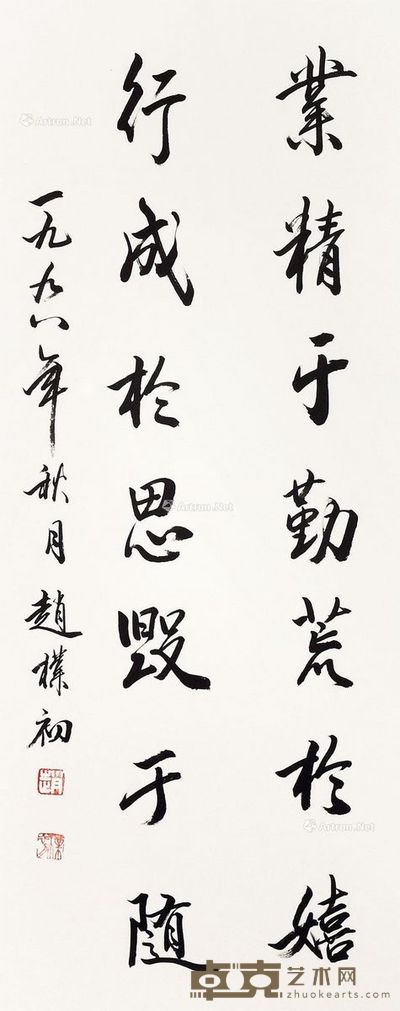 業精于勤荒於嬉
行成於思毀于随
一九九八年秋月趙樸初
Artron.Net
Artron.Net
Artron.Net
卓克艺术网
zhuokearts.com